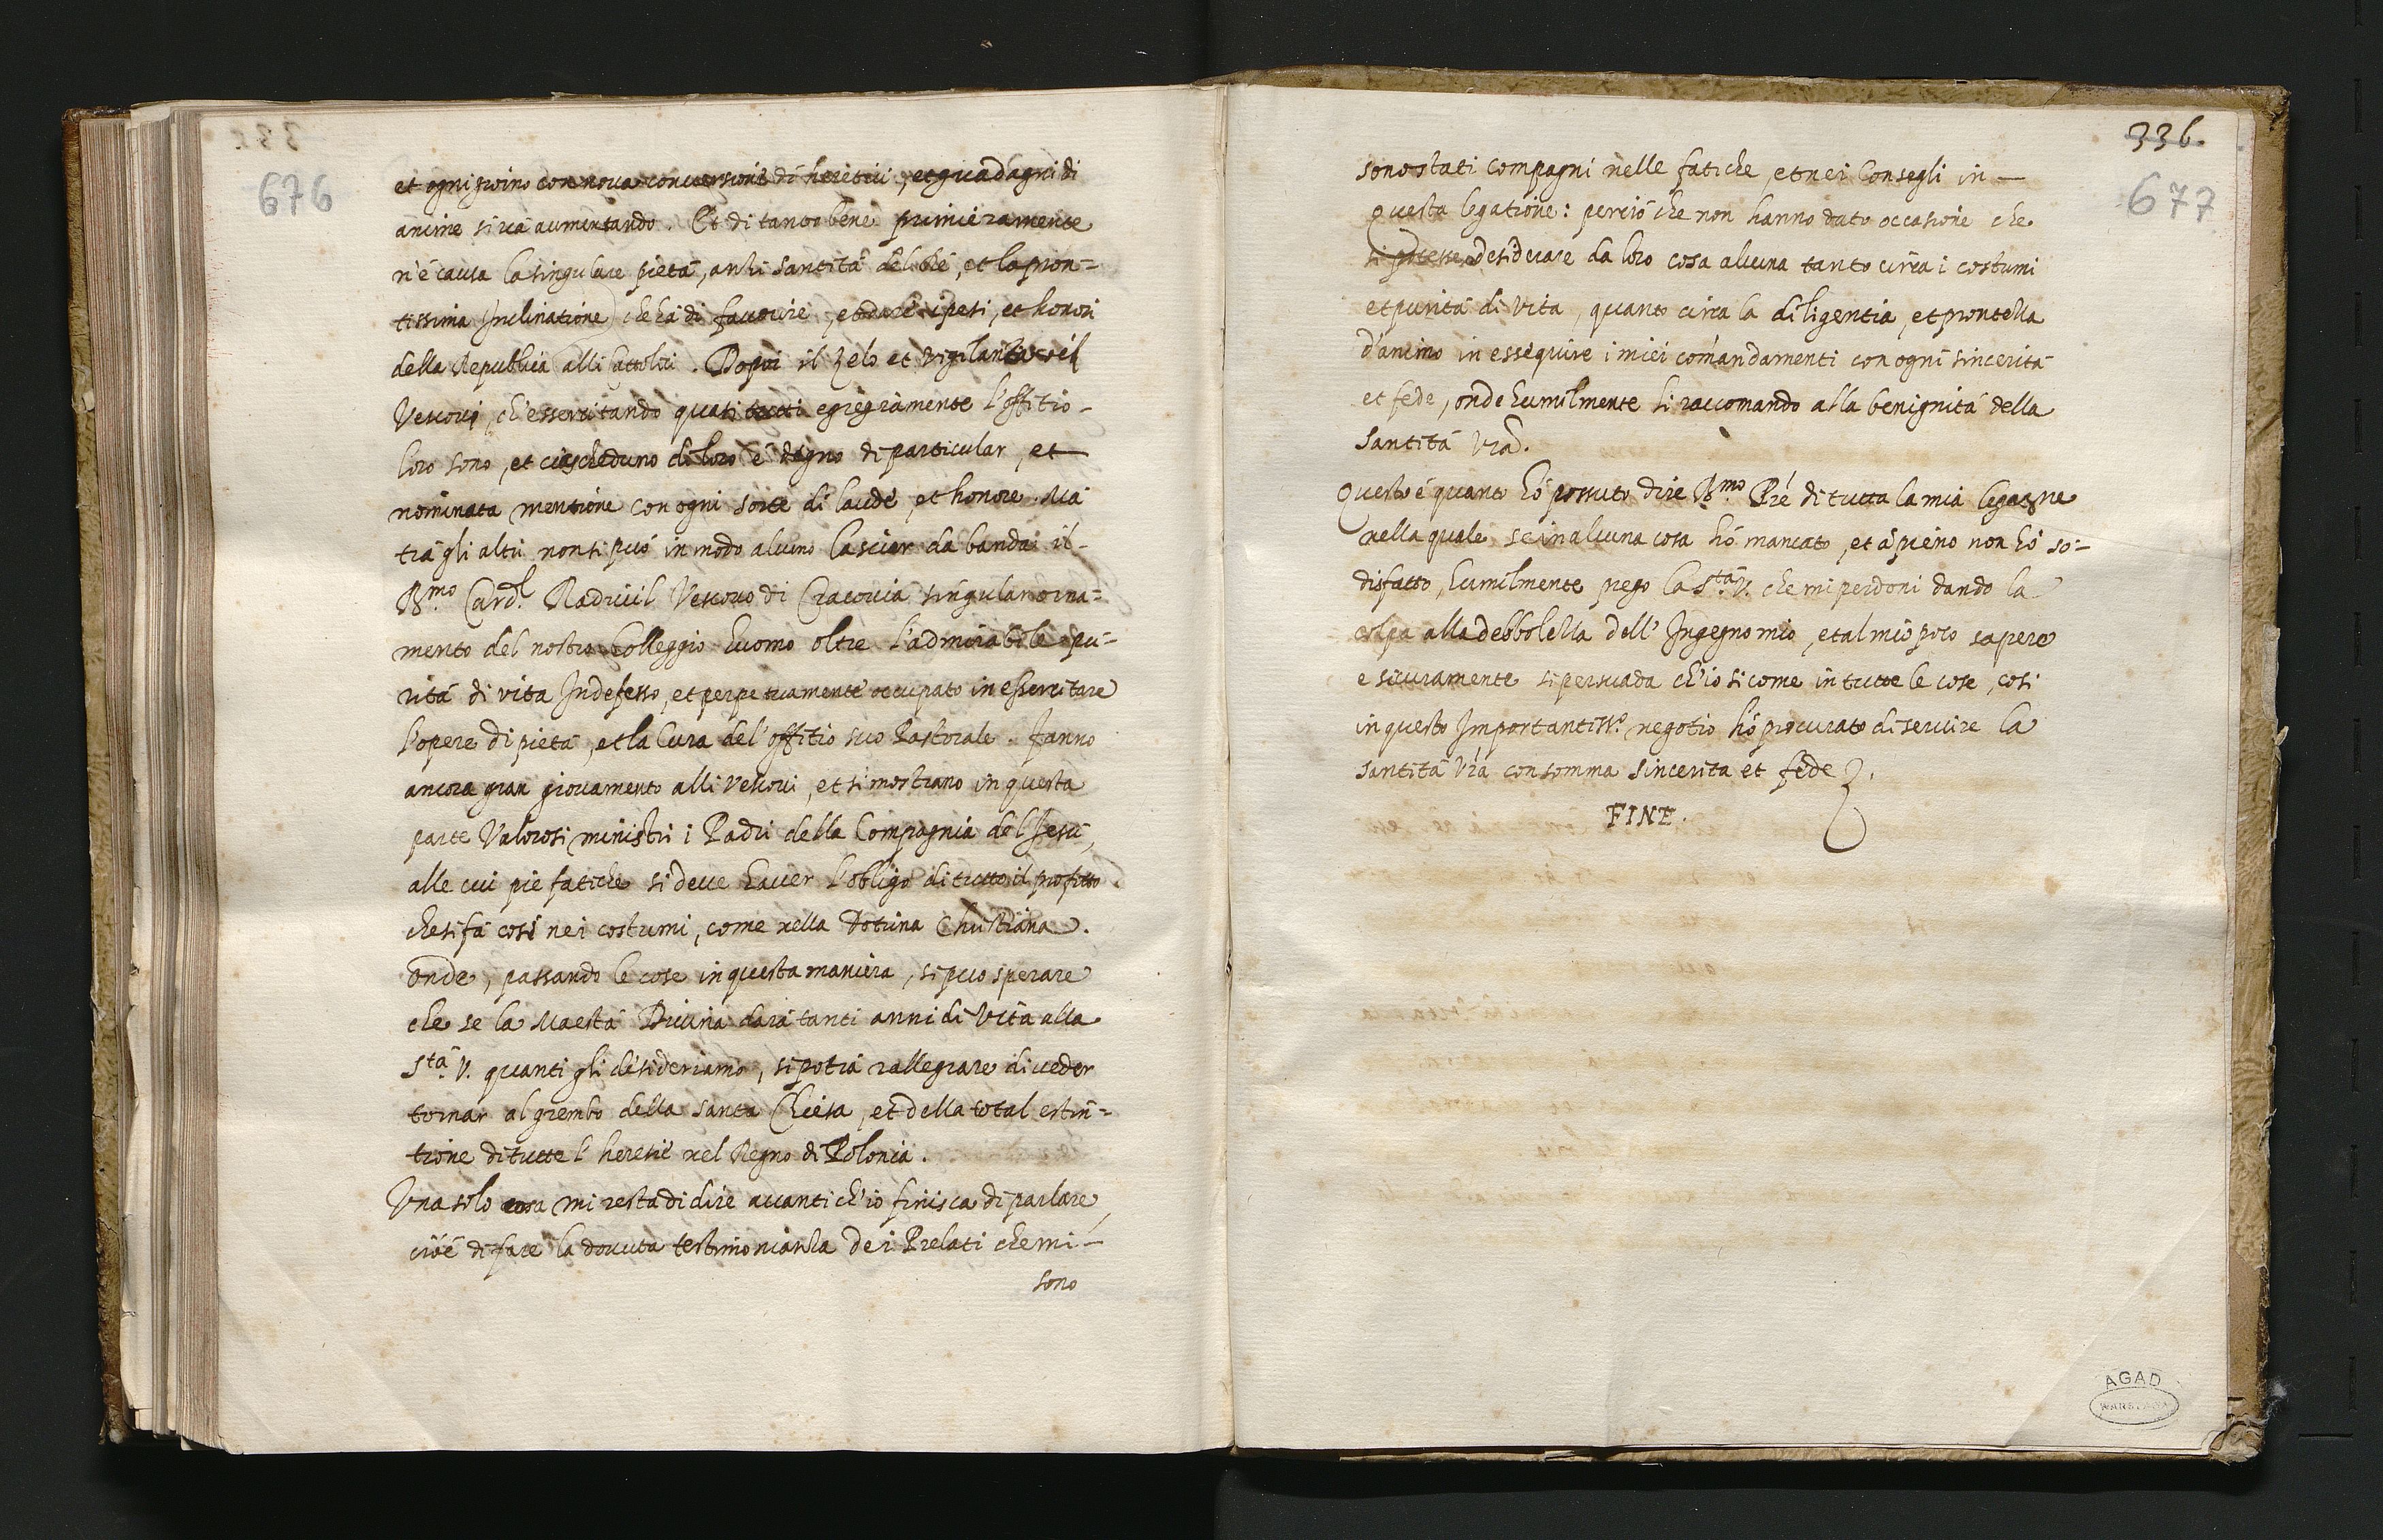 676
et ogni giorno con nova conversione di heretici, et guadagni di
anime si và aumentando. Et di tanto bene primieramente
n'è causa la singulare pietà, anzi santità del Rè, et la pron=
tissima Inclinatione che hà di favorire, et dare i pesi, et honori
della Republica alli Cattolici. Dopoi il zelo et vigilanza
Vescovi, ch'essercitando quasi tutti egregiamente l'offitio
loro sono, et ciascheduno di loro è degno di particular, et
nominata mentione con ogni sorte di laude, et honore. Mà
trà gli altri non si può in modo alcuno lasciar da banda il
Ill.mo Card.l Radzivil Vescovo di Cracovia singular orna=
mento del nostro Colleggio huomo oltre l'admirabile pu=
rità di vita Indefesso, et perpetuamente occupato in essercitare
l'opere di pietà, et la Cura del'offitio suo Pastorale. Fanno
ancora gran giovamento alli Vescovi, et si mostrano in questa
parte Valorosi ministri i Padri della Compagnia del Jesù,
alle cui pie fatiche si deve haver l'obligo di tutto il profitto
che si fà così nei costumi, come nella Dotrina Christiana.
onde, passando le cose in questa maniera, si può sperare
che se la Maestà Divina darà tanti anni di Vita alla
S.tà V. quanti gli desideriamo, si potrà rallegrare di veder
tornar al grembo della santa Chiesa, et della total estin=
tione di tutte l'heresie nel Regno di Polonia.
Una solo cosa mi resta di dire avanti ch'io finisca di parlare,
cioè di fare la dovuta testimonianza dei Prelati che mi
sono
336.
677
sono stati compagni nelle fatiche, et nei Consegli in
questa legatione: perciò che non hanno dato occasione che
si potesse desiderare da loro cosa alcuna tanto circa i costumi
et purità di vita, quanto circa la diligentia, et prontezza
d'animo in essequire i miei comandamenti con ogni sincerità
et fede, onde humilmente li raccomando alla benignità della
Santità Vra.
Questo è quanto hò possuto dire B.mo Prè di tutta la mia legatne
nella quale se in alcuna cosa hò mancato, et à pieno non hò so=
disfatto, humilmente prego la S.tà V. che mi perdoni dando la
colpa alla debbolezza dell'Ingegno mio, et al mio poco sapere
e sicuramente si persuada ch'io si come in tutte le cose, così
in questo Importantiss.o negotio hò procurato di servire la
santità Vrà con somma sincerità et fede.
FINE.
AGAD
WARSZAWA